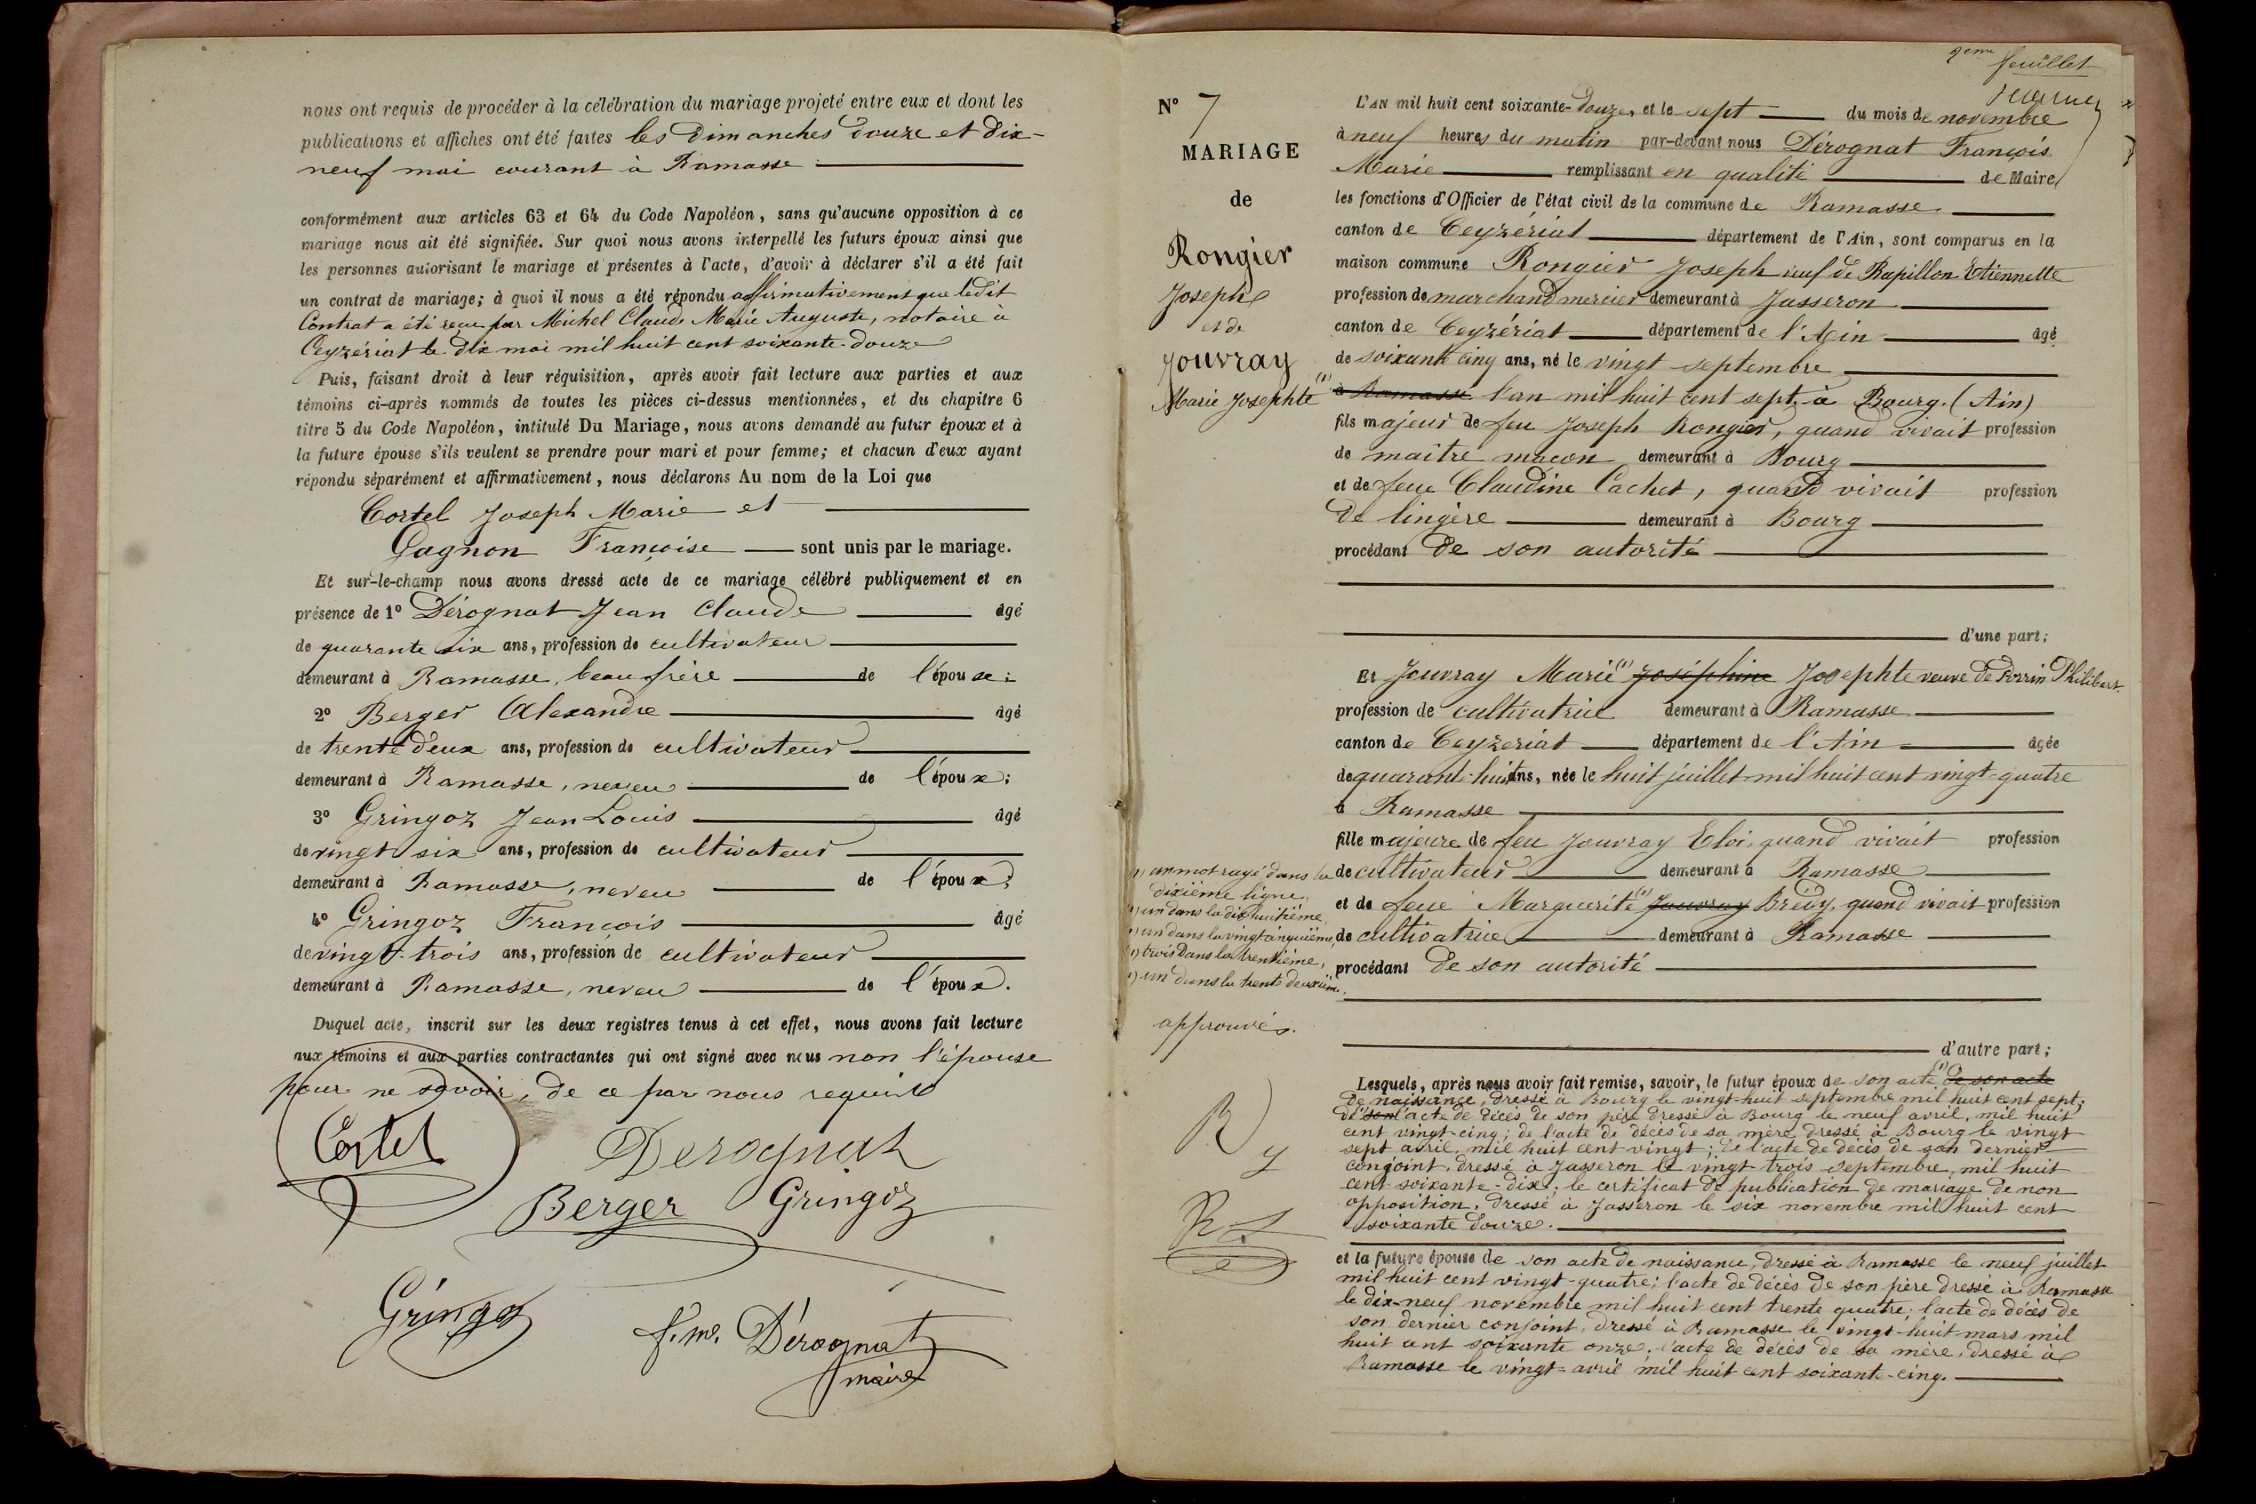 nous ont requis de procéder à la célébration du mariage projeté entre eux et dont les
publications et affiches ont été faites les Dimanches Douze et Dix-
neuf mai courant à Ramasse
conformément aux articles 63 et 64 du Code Napoléon, sans qu'aucune opposition à ce
mariage nous ait été signifiée. Sur quoi nous avons interpellé les futurs époux ainsi que
les personnes autorisant le mariage et présentes à l'acte, d'avoir à déclarer s'il a été fait
un contrat de mariage; à quoi il nous a été répondu affirmativement que ledit
Contrat a été reçu par Michel Claude Marie Auguste, notaire à
Ceyzériat le dix mai mil huit cent soixante-douze
Puis, faisant droit à leur réquisition, après avoir fait lecture aux parties et aux
témoins ci-après nommés de toutes les pièces ci-dessus mentionnées, et du chapitre 6
titre 5 du Code Napoléon, intitulé Du Mariage, nous avons demandé au futur époux et à
la future épouse s'ils veulent se prendre pour mari et pour femme; et chacun d'eux ayant
répondu séparément et affirmativement, nous déclarons Au nom de la Loi que
Cortel Joseph Marie et
Gagnon Françoise sont unis par le mariage.
Et sur-le-champ nous avons dressé acte de ce mariage célébré publiquement et en
présence de 1° Dérognat Jean Claude âgé
de quarante six ans, profession de cultivateur
demeurant à Ramasse, beau frère de l'épouse;
2° Berger Alexandre âgé
de trente deux ans, profession de cultivateur
demeurant à Ramasse, neveu de l'époux;
3° Gringoz Jean Louis âgé
de vingt six ans, profession de cultivateur
demeurant à Ramasse, neveu de l'époux;
4° Gringoz François âgé
de vingt-trois ans, profession de cultivateur
demeurant à Ramasse, neveu de l'époux.
Duquel acte, inscrit sur les deux registres tenus à cet effet, nous avons fait lecture
aux témoins et aux parties contractantes qui ont signé avec nous non l'épouse
pour ne savoir, de ce par nous requise
Cortel Derognat
Berger Gringoz
Gringoz f. me. Dérognat
maire
feuillet
N° 7
MARIAGE
de
Rongier
Joseph
et de
Jouvray
Marie Josephte
L'AN mil huit cent soixante-douze, et le sept du mois de novembre
à neuf heures du matin par-devant nous Dérognat François
Marie remplissant en qualité de Maire
les fonctions d'Officier de l'état civil de la commune de Ramasse
canton de Ceyzériat département de l'Ain, sont comparus en la
maison commune Rongier Joseph veuf de Rapillon Etiennette
profession de marchand mercier demeurant à Jasseron
canton de Ceyzériat département de l'Ain âgé
de soixante cinq ans, né le vingt septembre
(1) à Ramasse l'an mil huit cent sept, à Bourg. (Ain)
fils majeur de feu Joseph Rongier, quand vivait profession
de maître maçon demeurant à Bourg
et de feue Claudine Cachet, quand vivait profession
de lingère demeurant à Bourg
procédant de son autorité
d'une part;
Et Jouvray Marie (1) Joséphine Josephte veuve de Perrin Philibert
profession de cultivatrice demeurant à Ramasse
canton de Ceyzeriat département de l'Ain âgée
de quarante-huit ans, née le huit juillet mil huit cent vingt-quatre
à Ramasse
fille majeure de feu Jouvray Eloi, quand vivait profession
de cultivateur demeurant à Ramasse
et de feue Marguerite (1) Jouvray Brévy, quand vivait profession
de cultivatrice demeurant à Ramasse
procédant de son autorité
d'autre part;
1) un mot rayé dans la
dixième ligne.
1) un dans la dix huitième,
1) un dans la vingt cinquième,
1) trois dans la trentième,
1) un dans la trente deuxième.
approuvés.
R y
R J
Lesquels, après nous avoir fait remise, savoir, le futur époux de son acte (1) de son acte
de naissance, dressé à Bourg le vingt-huit septembre mil huit cent sept;
de son l'acte de décès de son père dressé à Bourg le neuf avril, mil huit
cent vingt-cinq; de l'acte de décès de sa mère dressé à Bourg le vingt
sept avril, mil huit cent vingt; de l'acte de décès de son dernier
conjoint, dressé à Jasseron le vingt-trois septembre, mil huit
cent soixante-dix; le certificat de publication de mariage de non
opposition, dressé à Jasseron le six novembre mil huit cent
soixante douze.
et la future épouse de son acte de naissance, dressé à Ramasse le neuf juillet
mil huit cent vingt-quatre; l'acte de décès de son père dressé à Ramasse
le dix-neuf novembre mil huit cent trente quatre; l'acte de décès de
son dernier conjoint, dressé à Ramasse le vingt-huit mars mil
huit cent soixante onze; l'acte de décès de sa mère, dressé à
Ramasse le vingt-avril mil huit cent soixante-cinq.